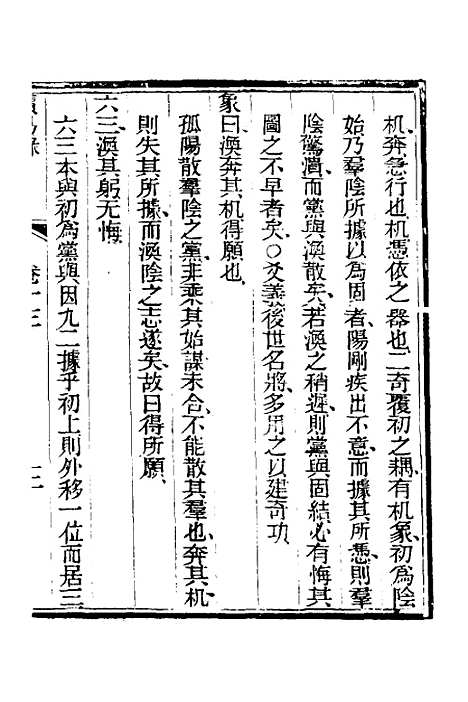 机奔急行也机憑依之器也二奇覆初之耦有机象初為陰
始乃羣陰所據以為固者陽剛疾出不意而據其所憑則羣
陰驚潰而黨與渙散矣若渙之稍遲則黨與固結必有悔其
圖之不早者矣○爻義後世名將多用之以建奇功
象曰渙奔其机得願也
孤陽散羣陰之黨非乘其始謀未合不能散其羣也奔其机
則失其所據而渙陰之志遂矣故曰得所願
六三渙其躬无悔
六三本與初為黨與因九二據乎初上則外移一位而居三
卷十三